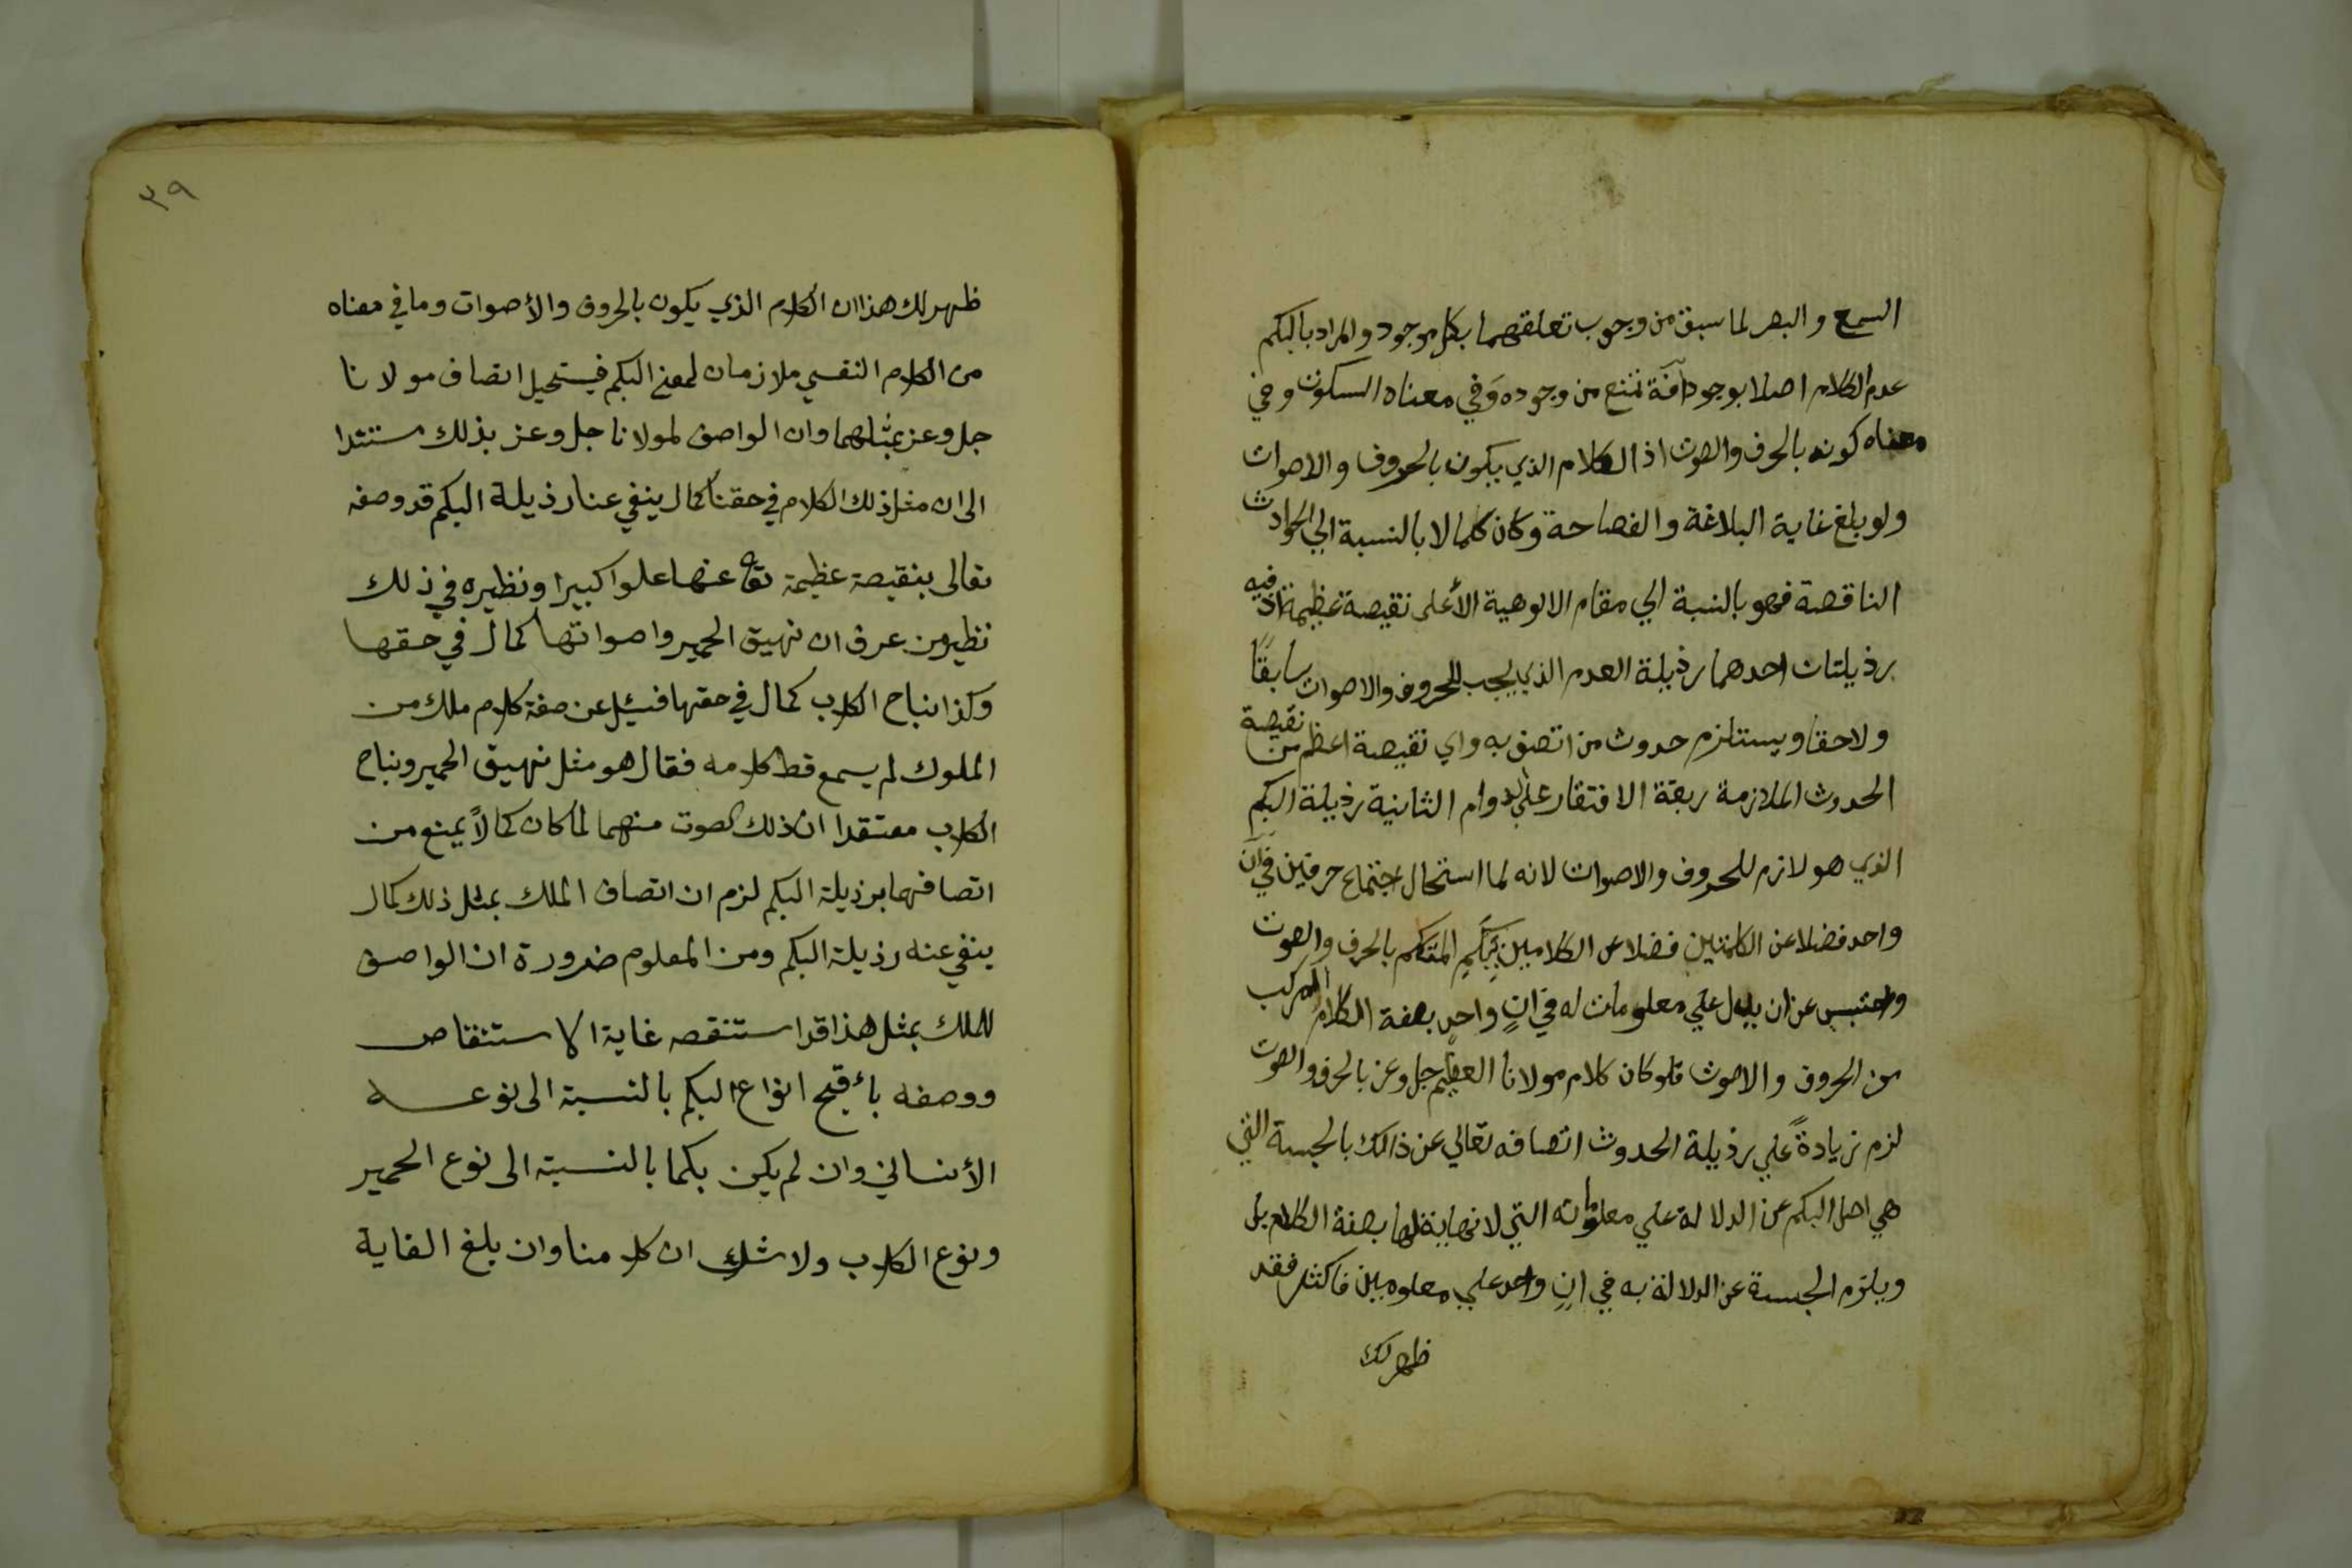 السمع والبصر لما سبق من وجوب تعلقهما بكل موجود والمراد بالبكم
عدم الكلام اصلا بوجود آفة تمنع من وجوده وَفي معناه السكوت وفي
معناه كونه بالحرف والصوت اذ الكلام الذي يكون بالحروف والاصوات
ولو بلغ غاية البلاغة والفصاحة وكان كمالا بالنسبة الي الحوادث
الناقصة فهو بالنسبة الي مقام الالوهية الأعلى نقيصة عظيمة اذ فيه
رذيلتان احدهما رذيلة العدم الذي يجب للحروف والاصوات سابقًا
ولاحقا ويستلزم حدوث من اتصف به واي نقيصة اعظم من نقيصة
الحدوث الملازمة ربقة الافتقار علي الدوام الثانية رذيلة البكم
الذي هو لازم للحروف والاصوات لانه لما استحال اجتماع حرفين في آن
واحد فضلا عن الكلمتين فضلا عن الكلامين تبكم المتكلم بالحرف والصوت
واحتبس عن ان يدل علي معلومات له في انٍ واحدٍ بصفة الكلام المركب
من الحروف والاصوت فلو كان كلام مولانا العظيم جل وعز بالحرف والصوت
لزم زيادةً علي رذيلة الحدوث اتصافه تعالي عن ذالك بالحبسة التي
هي اصل البكم عن الدلالة علي معلوماته التي لا نهاية لها بصفة الكلام بل
ويلزم الحبسة عن الدلالة به في انٍ واحد علي معلومين فاكثر فقد
ظهر لك
٣٩
ظهر لك هذا ان الكلام الذي يكون بالحروف والأصوات وما في معناه
من الكلام النفسي ملازمان لمعني البكم فيستحيل اتصاف مولانا
جل وعز بمثلهما وان الواصف لمولانا جل وعز بذلك مستندا
الى ان مثل ذلك الكلام في حقنا كمال ينفي عنا رذيلة البكم قد وصفه
تعالى بنقيصة عظيمة تعا عنها علوا كبيرا ونظيره في ذلك
نظير من عرف ان نهيق الحمير واصواتها كمال في حقها
وكذا نباح الكلاب كمال في حقها فسئل عن صفة كلام ملك من
الملوك لم يسمع قط كلامه فقال هو مثل نهيق الحمير ونباح
الكلاب معتقدا ان ذلك الصوت منهما لما كان كمالاً يمنع من
اتصافهما برذيلة البكم لزم ان اتصاف الملك بمثل ذلك كمال
ينفي عنه رذيلة البكم ومن المعلوم ضرورة ان الواصف
للملك بمثل هذا قد استنقصه غاية الاستنقاص
ووصفه بأقبح انواع البكم بالنسبة الى نوعه
الأنساني وان لم يكن بكما بالنسبة الى نوع الحمير
ونوع الكلاب ولا شك ان كلامنا وان بلغ الغاية